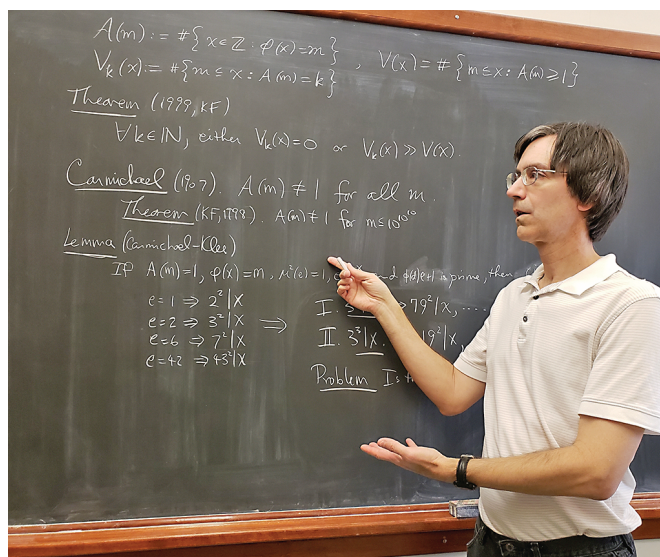 A(m) := #{x∈ℤ: φ(x)=m}
V_k(x) := #{m≤x: A(m)=k}, V(x) = #{m≤x: A(m)≥1}
Theorem (1999, KF)
∀k∈ℕ, either V_k(x)=0 or V_k(x) ≫ V(x).
Carmichael (1907). A(m) ≠ 1 for all m.
Theorem (KF, 1998). A(m) ≠ 1 for m ≤ 10^10^10
Lemma (Carmichael-Klee)
If A(m)=1, φ(x)=m, μ²(e)=1, and is prime, then
e=1 ⇒ 2²|x
e=2 ⇒ 3²|x ⇒
e=6 ⇒ 7²|x
e=42 ⇒ 43²|x
I. ⇒ 79²|x, ....
II. 3³|x 19²|x,
Problem Is